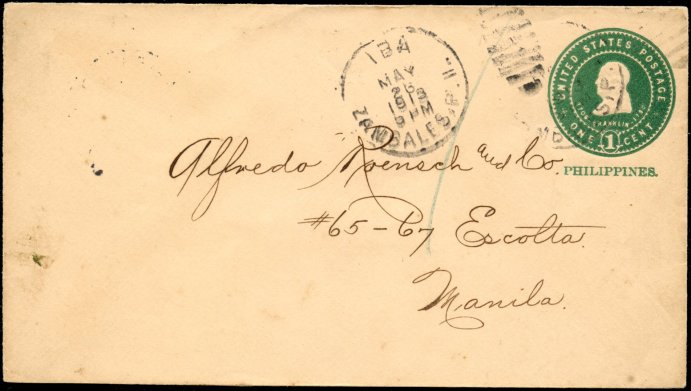 IBA
MAY
26
9 PM
ZAMBALES, P.I.
UNITED STATES POSTAGE
FRANKLIN
ONE CENT
1
PHILIPPINES.
Alfredo Roensch and Co.
#65-67 Escolta.
Manila.